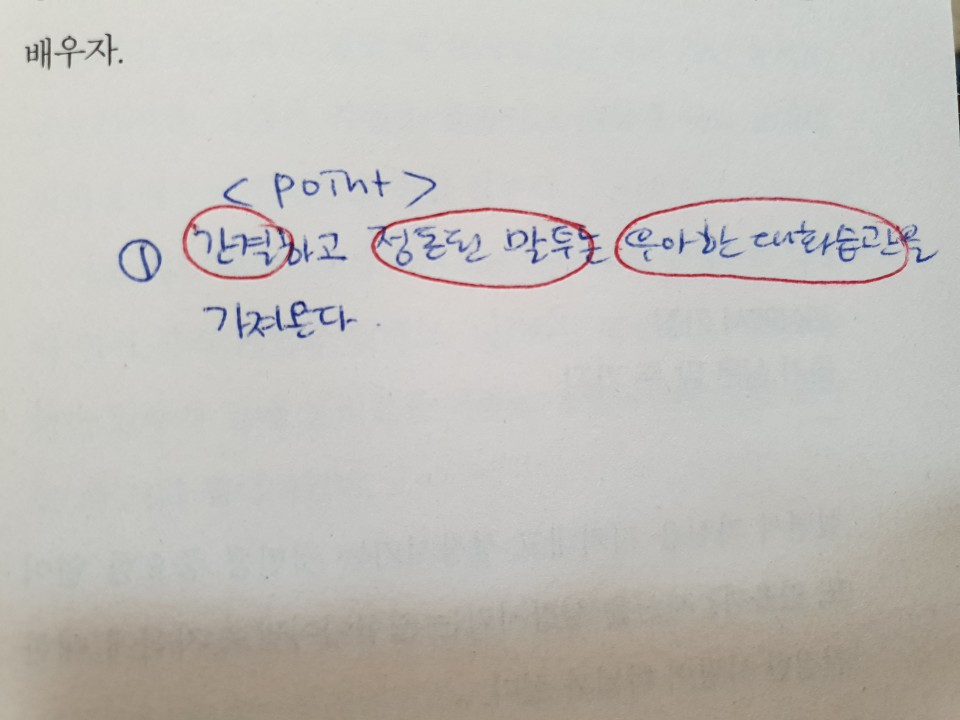 배우자.
< point >
① 간결하고 정돈된 말투는 우아한 대화습관을
가져온다.